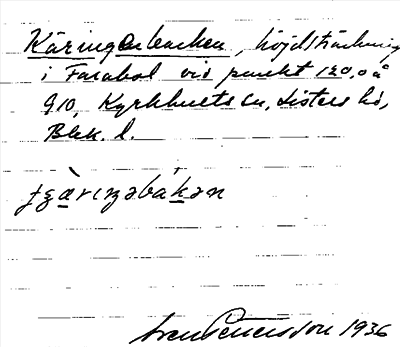 Käringabacken, höjdsträckning
i Farabol vid punkt 120,0 å
910, Kyrkhults sn, Listers hd,
Blek. l.
ɟʒàrıŋabákan
Sven Benson 1936